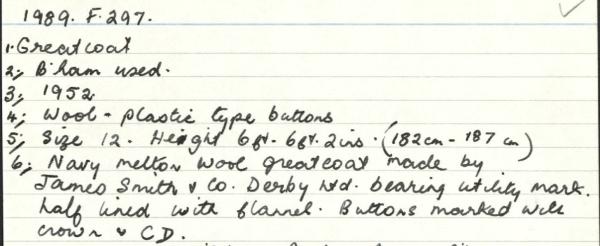 1989. F. 297.
1. Greatcoat
2; B'ham used.
3; 1952
4; Wool - plastic type buttons
5; Size 12. Height 6ft. - 6ft. 2ins. (182cm - 187 cm)
6; Navy melton wool greatcoat made by
James Smith & Co. Derby Ltd. bearing utility mark.
half lined with flannel. Buttons marked with
crown & CD.